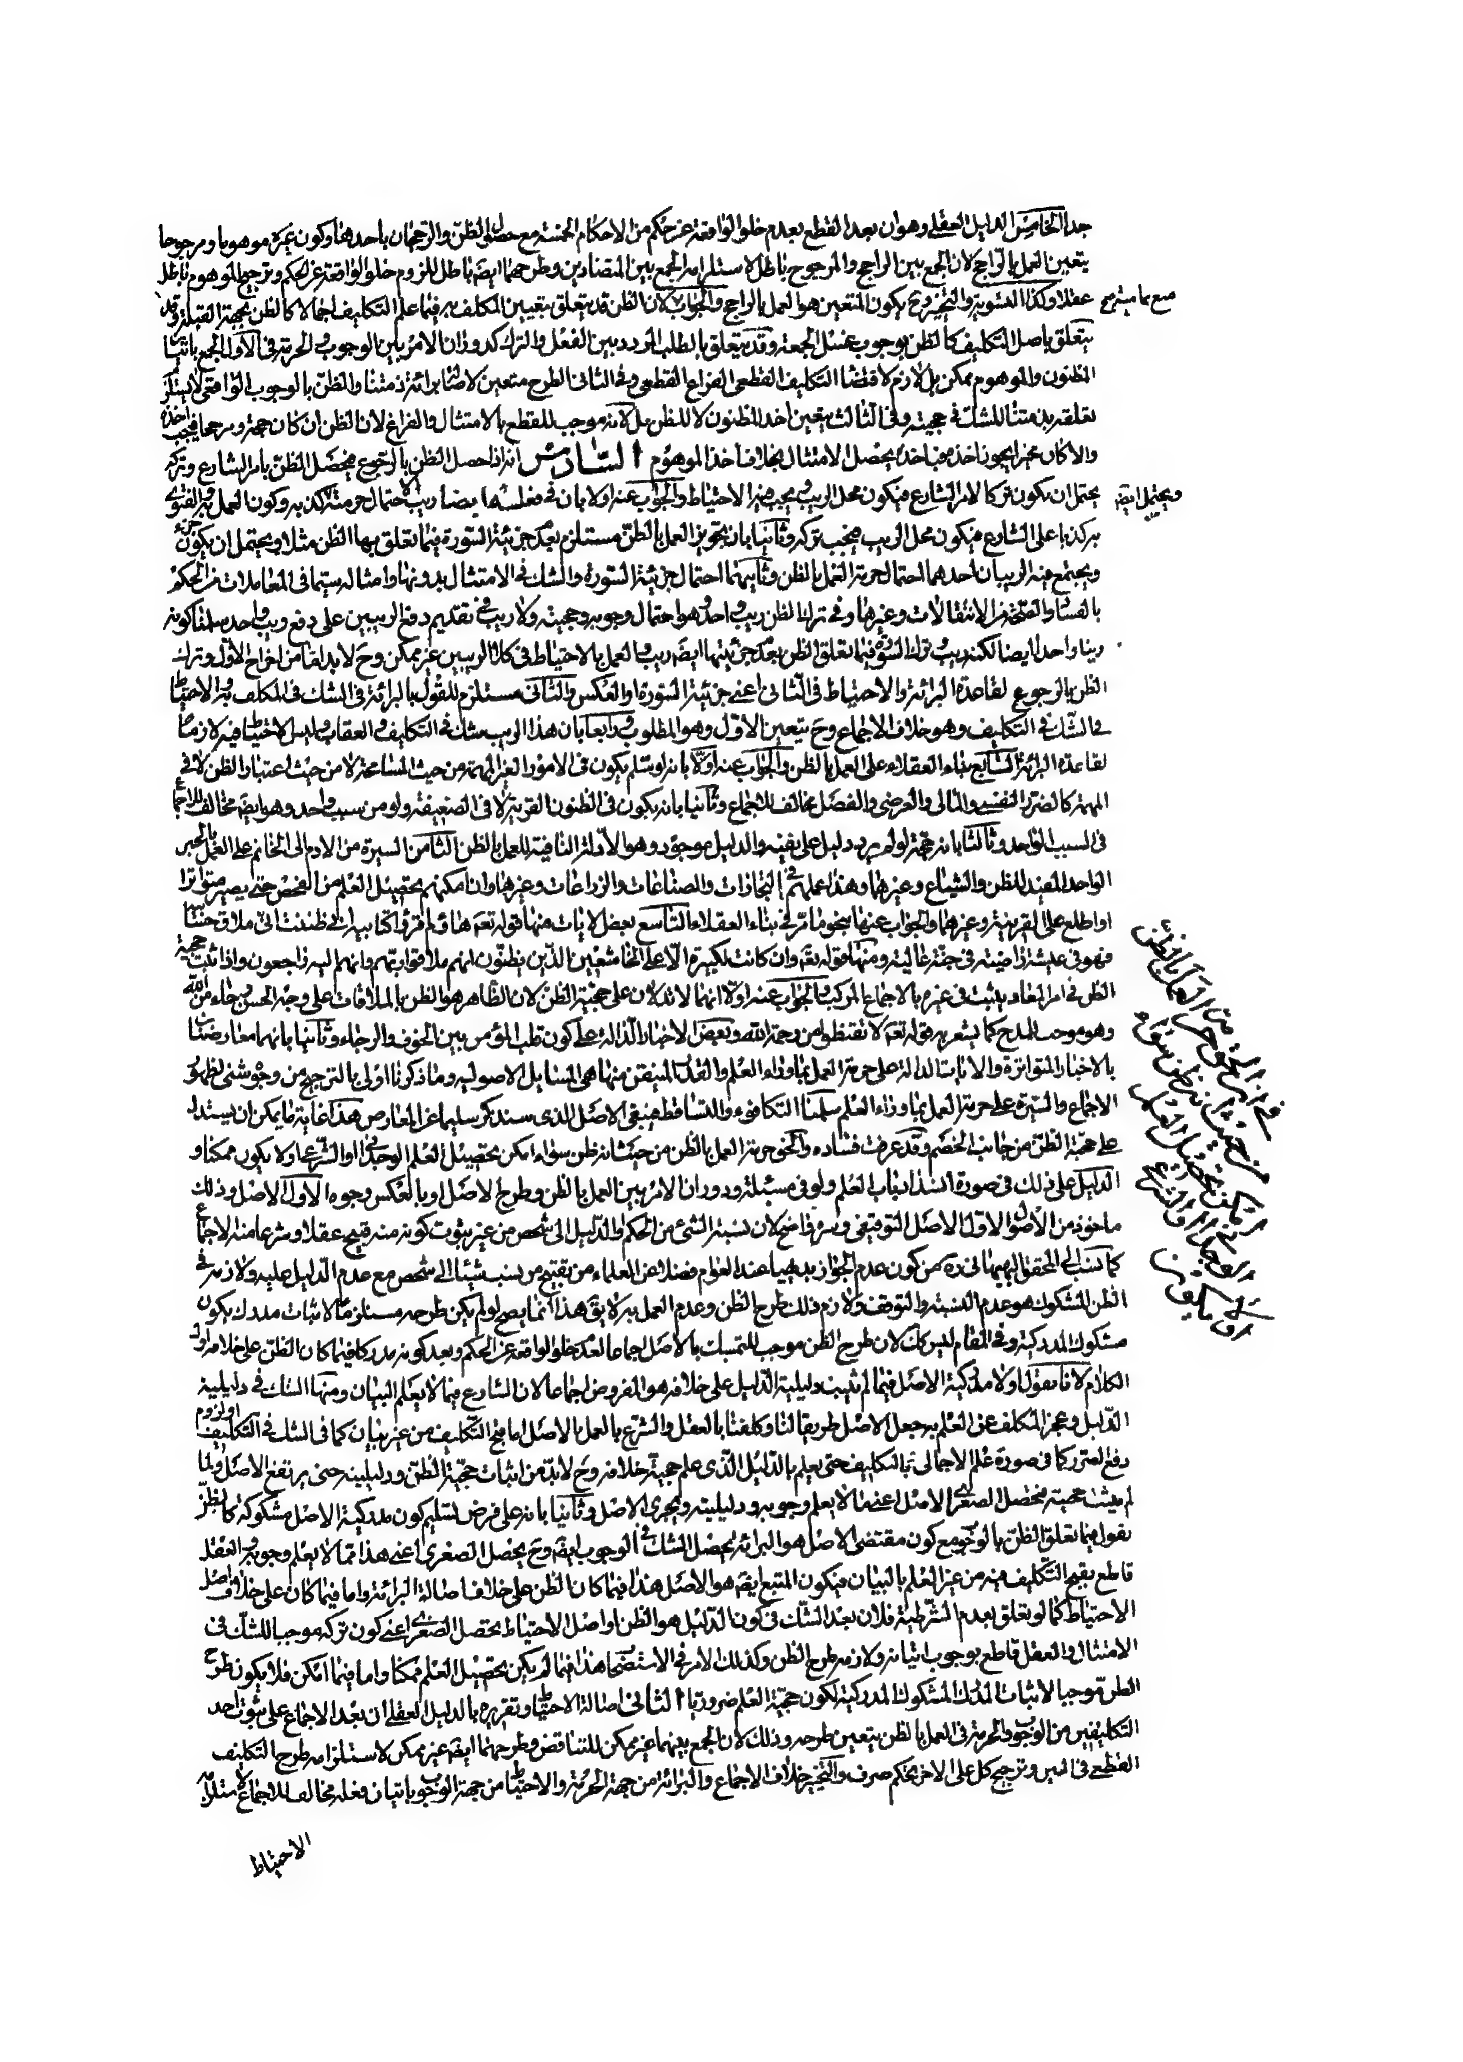 جدا الخامس الدليل العقلي وهو ان بعد القطع بعدم خلو الواقعة عن حكم من الاحكام الخمسة مع حصول الظن والرجحان باحدهما وكون غيره موهوبا ومرجوحا
يتعين العمل بالراجح لان الجمع بين الراجح والمرجوح باطل لاستلزامه الجمع بين المتضادين وطرحهما ايضا باطل للزوم خلو الواقعة عن الحكم وترجيح الموهوم باطل
عقلا وكذا التسوية والتخيير وح يكون المتعين هو العمل بالراجح والجواب لان الظن قد يتعلق بتعيين المكلف به فيما علم التكليف اجمالا كالظن بجهة القبلة وقد
يتعلق باصل التكليف كالظن بوجوب غسل الجمعة وقد يتعلق بالطلب المردد بين الفعل والترك كدوران الامر بين الوجوب والحرمة ففي الاول الجمع باتيان
المظنون والموهوم ممكن بل لازم لاقتضاء التكليف القطعي الفراغ القطعي وفي الثاني الطرح متعين لاصالة برائة ذمتنا والظن بالوجوب الواقعي لا يستلزم
تعلقه بذمتنا للشك في حجيته وفي الثالث يتعين اخذ المظنون لا للظن بل لانه موجب للقطع بالامتثال والفراغ لان الظن ان كان حجة ومرجعا فيجب اخذه
والا كان مخيرا يجوز اخذه فباخذه يحصل الامتثال بخلاف اخذ الموهوم السادس انه اذا حصل الظن بالرجوع فيحصل الظن بامر الشارع وتركه
يحتمل ان يكون تركا لامر الشارع فيكون محل الريب ويجب فيه الاحتياط والجواب عنه اولا بان في فعليته ايضا ريب لاحتمال حرمته وكون العمل به والفتوى
به كذبا على الشارع فيكون محل الريب فيجب تركه وثانيا بان تجويز العمل بالظن مستلزم بعدم جزئية السورة فيما تعلق بها الظن مثلا ويحتمل ان يكون جزء
ويجتمع فيه الريبان احدهما احتمال حرمة العمل بالظن وثانيهما احتمال جزئية السورة والشك في الامتثال بدونها وامثاله سيما في المعاملات من الحكم
بالفساد والصحة من الانتقالات وغيرها وفي ترك الظن ريب واحد وهو احتمال وجوبه وحجيته ولا ريب في تقديم دفع الريبين على دفع ريب واحد سلمنا كونه
ريبا واحدا ايضا لكنه ريب وترك السورة فيما تعلق الظن بعدم جزئيتها ايضا ريب والعمل بالاحتياط في كلا الريبين غير ممكن وح لابد لنا من اخراج الاول وترك
الظن بالرجوع لقاعدة البرائة والاحتياط في الثاني اعني جزئية السورة او العكس والثاني مستلزم للقول بالبرائة في الشك في المكلف به والاحتياط
في الشك في التكليف وهو خلاف الاجماع وح يتعين الاول وهو المطلوب ورابعا بان هذا الريب شك في التكليف والعقاب وليس الاحتياط فيه لازما
لقاعدة البرائة السابع بناء العقلاء على العمل بالظن والجواب عنه اولا بانه لو سلم يكون في الامور الغير المهمة من حيث المسامحة لا من حيث اعتبار الظن لا في
المهمة كالضرر النفسي والمالي والعرضي والفصل مخالف للاجماع وثانيا بانه يكون في الظنون القوية لا في الضعيفة ولو من سبب واحد وهو ايضا مخالف للاجماع
في السبب الواحد وثالثا بانه حجة لو لم يرد دليل على نفيه والدليل موجود وهو الادلة النافية للعمل بالظن الثامن السيرة من الادم الى الخاتم على العمل بالخبر
الواحد المفيد للظن والشياع وغيرهما وهذا عملهم في التجارات والصناعات والزراعات وغيرها وان امكنهم تحصيل العلم من الفحص حتى يصير متواترا
او اطلع على القرينة وغيرهما والجواب عنها بنحو ما مر في بناء العقلاء التاسع بعض الايات منها قوله تعه هاؤم اقرؤا كتابيه اني ظننت اني ملاق حسابيه
فهو في عيشة راضية في جنة عالية ومنها قوله تعه وان كانت لكبيرة الا على الخاشعين الذين يظنون انهم ملاقوا ربهم وانهم اليه راجعون واذا ثبت حجية
الظن في امر المعاد يثبت في غيره بالاجماع المركب والجواب عنه اولا انهما لا تدلان على حجية الظن لان الظاهر هو الظن بالملاقات على وجه الحسن ورجاء من الله
وهو موجب المدح كما يشعر به قوله تعه لا تقنطوا من رحمة الله وبعض الاخبار الدالة على كون قلب المؤمن بين الخوف والرجاء وثانيا بانهما معارضتان
بالاخبار المتواترة والايات الدالة على حرمة العمل بما وراء العلم والقدر المتيقن منها هي المسايل الاصولية وما ذكرنا اولى بالترجيح من وجوه شتى لظهور
الاجماع والسيرة على حرمة العمل بما وراء العلم سلمنا التكافوء والتساقط فيبقى الاصل الذي سنذكر سليما عن المعارض هذا غاية ما يمكن ان يستدل
على حجية الظن من جانب الخصم وقد عرفت فساده والحق حرمة العمل بالظن من حيث انه ظن سواء امكن تحصيل العلم الوجداني او الشرعي او لا يكون ممكنا و
الدليل على ذلك في صورة انسداد باب العلم ولو في مسئلة ودوران الامر بين العمل بالظن وطرح الاصل او بالعكس وجوه الاول الاصل وذلك
ماخوذ من الاصول الاول الاصل التوقيفي وسره واضح لان نسبة الشئ من الحكم والدليل الى شخص من غير ثبوت كونه منه قبيح عقلا وشرعا منه الاجماع
كما نسب الى المحقق البهبهاني ره من كون عدم الجواز بديهيا عند العوام فضلا عن العلماء من تقبيح من ينسب شيئا الى شخص مع عدم الدليل عليه ولازمه في
الظن المشكوك هو عدم النسبة والتوقف ولازم ذلك طرح الظن وعدم العمل به لا يق هذا انما يصح لو لم يكن طرحه مستلزما لاثبات مدرك يكون
مشكوك المدركية وفي المقام ليس كك لان طرح الظن موجب للتمسك بالاصل اجماعا لعدم خلو الواقعة عن الحكم وبعد كونه مدركا فيما كان الظن على خلافه اول
الكلام لانا نقول اولا مدركية الاصل فيما لم يثبت دليلية الدليل على خلافه هو المفروض اجماعا لان الشارع فيما لا يعلم البيان ومنها الشك في دليلية
الدليل وعجز المكلف عن العلم به جعل الاصل طريقا لنا وكلفنا بالعقل والشرع بالعمل بالاصل اما قبح التكليف من غير بيان كما في الشك في التكليف او لزوم
دفع الضرر كما في صورة علم الاجمالي بالتكليف حتى يعلم بالدليل الذي علم حجيته خلافه وح لابد من اثبات حجية الظن ودليليته حتى يرتفع الاصل ولما
لم يثبت حجيته فيحصل الصغرى الاصل اعني ما لا يعلم وجوبه ودليليته ويجري الاصل وثانيا بانه على فرض تسليم كون مدركية الاصل مشكوكة كالظن
نقول فيما تعلق الظن بالوجوب مع كون مقتضى الاصل هو البرائة يحصل الشك في الوجوب ايضا وح يحصل الصغرى اعني هذا مما لا يعلم وجوبه والعقل
قاطع بقبح التكليف فيه من غير العلم بالبيان فيكون المتبع ايضا هو الاصل هذا فيما كان الظن على خلاف اصالة البرائة واما فيما كان على خلاف اصل
الاحتياط كما لو تعلق بعدم الشرطية فلان بعد الشك في كون الدليل هو الظن او اصل الاحتياط يحصل الصغرى اعني كون تركه موجبا للشك في
الامتثال والعقل قاطع بوجوب اتيانه ولازمه طرح الظن وكذلك الامر في الاستصحاب هذا فيما لم يكن تحصيل العلم ممكنا واما فيما امكن فلا يكون طرح
الظن موجبا لاثبات المدرك المشكوك المدركية لكون حجية العلم ضروريا الثاني اصالة الاحتياط وتقريره بالدليل العقلي ان بعد الاجماع على ثبوت احد
التكليفين من الوجوب والحرمة في العمل بالظن يتعين طرحه وذلك لان الجمع بينهما غير ممكن للتناقض وطرحهما ايضا غير ممكن لاستلزامه طرح التكليف
القطعي في البين وترجيح كل على الاخر تحكم صرف والتخيير خلاف الاجماع والبرائة من جهة الحرمة والاحتياط من جهة الوجوب باتيان فعله مخالف للاجماع
الاحتياط
ويحتمل ايضا
في ان الحق حرمة العمل بالظن
من حيث انه ظن سواء
امكن تحصيل العلم
الوجداني او الشرعي
او لا يكون